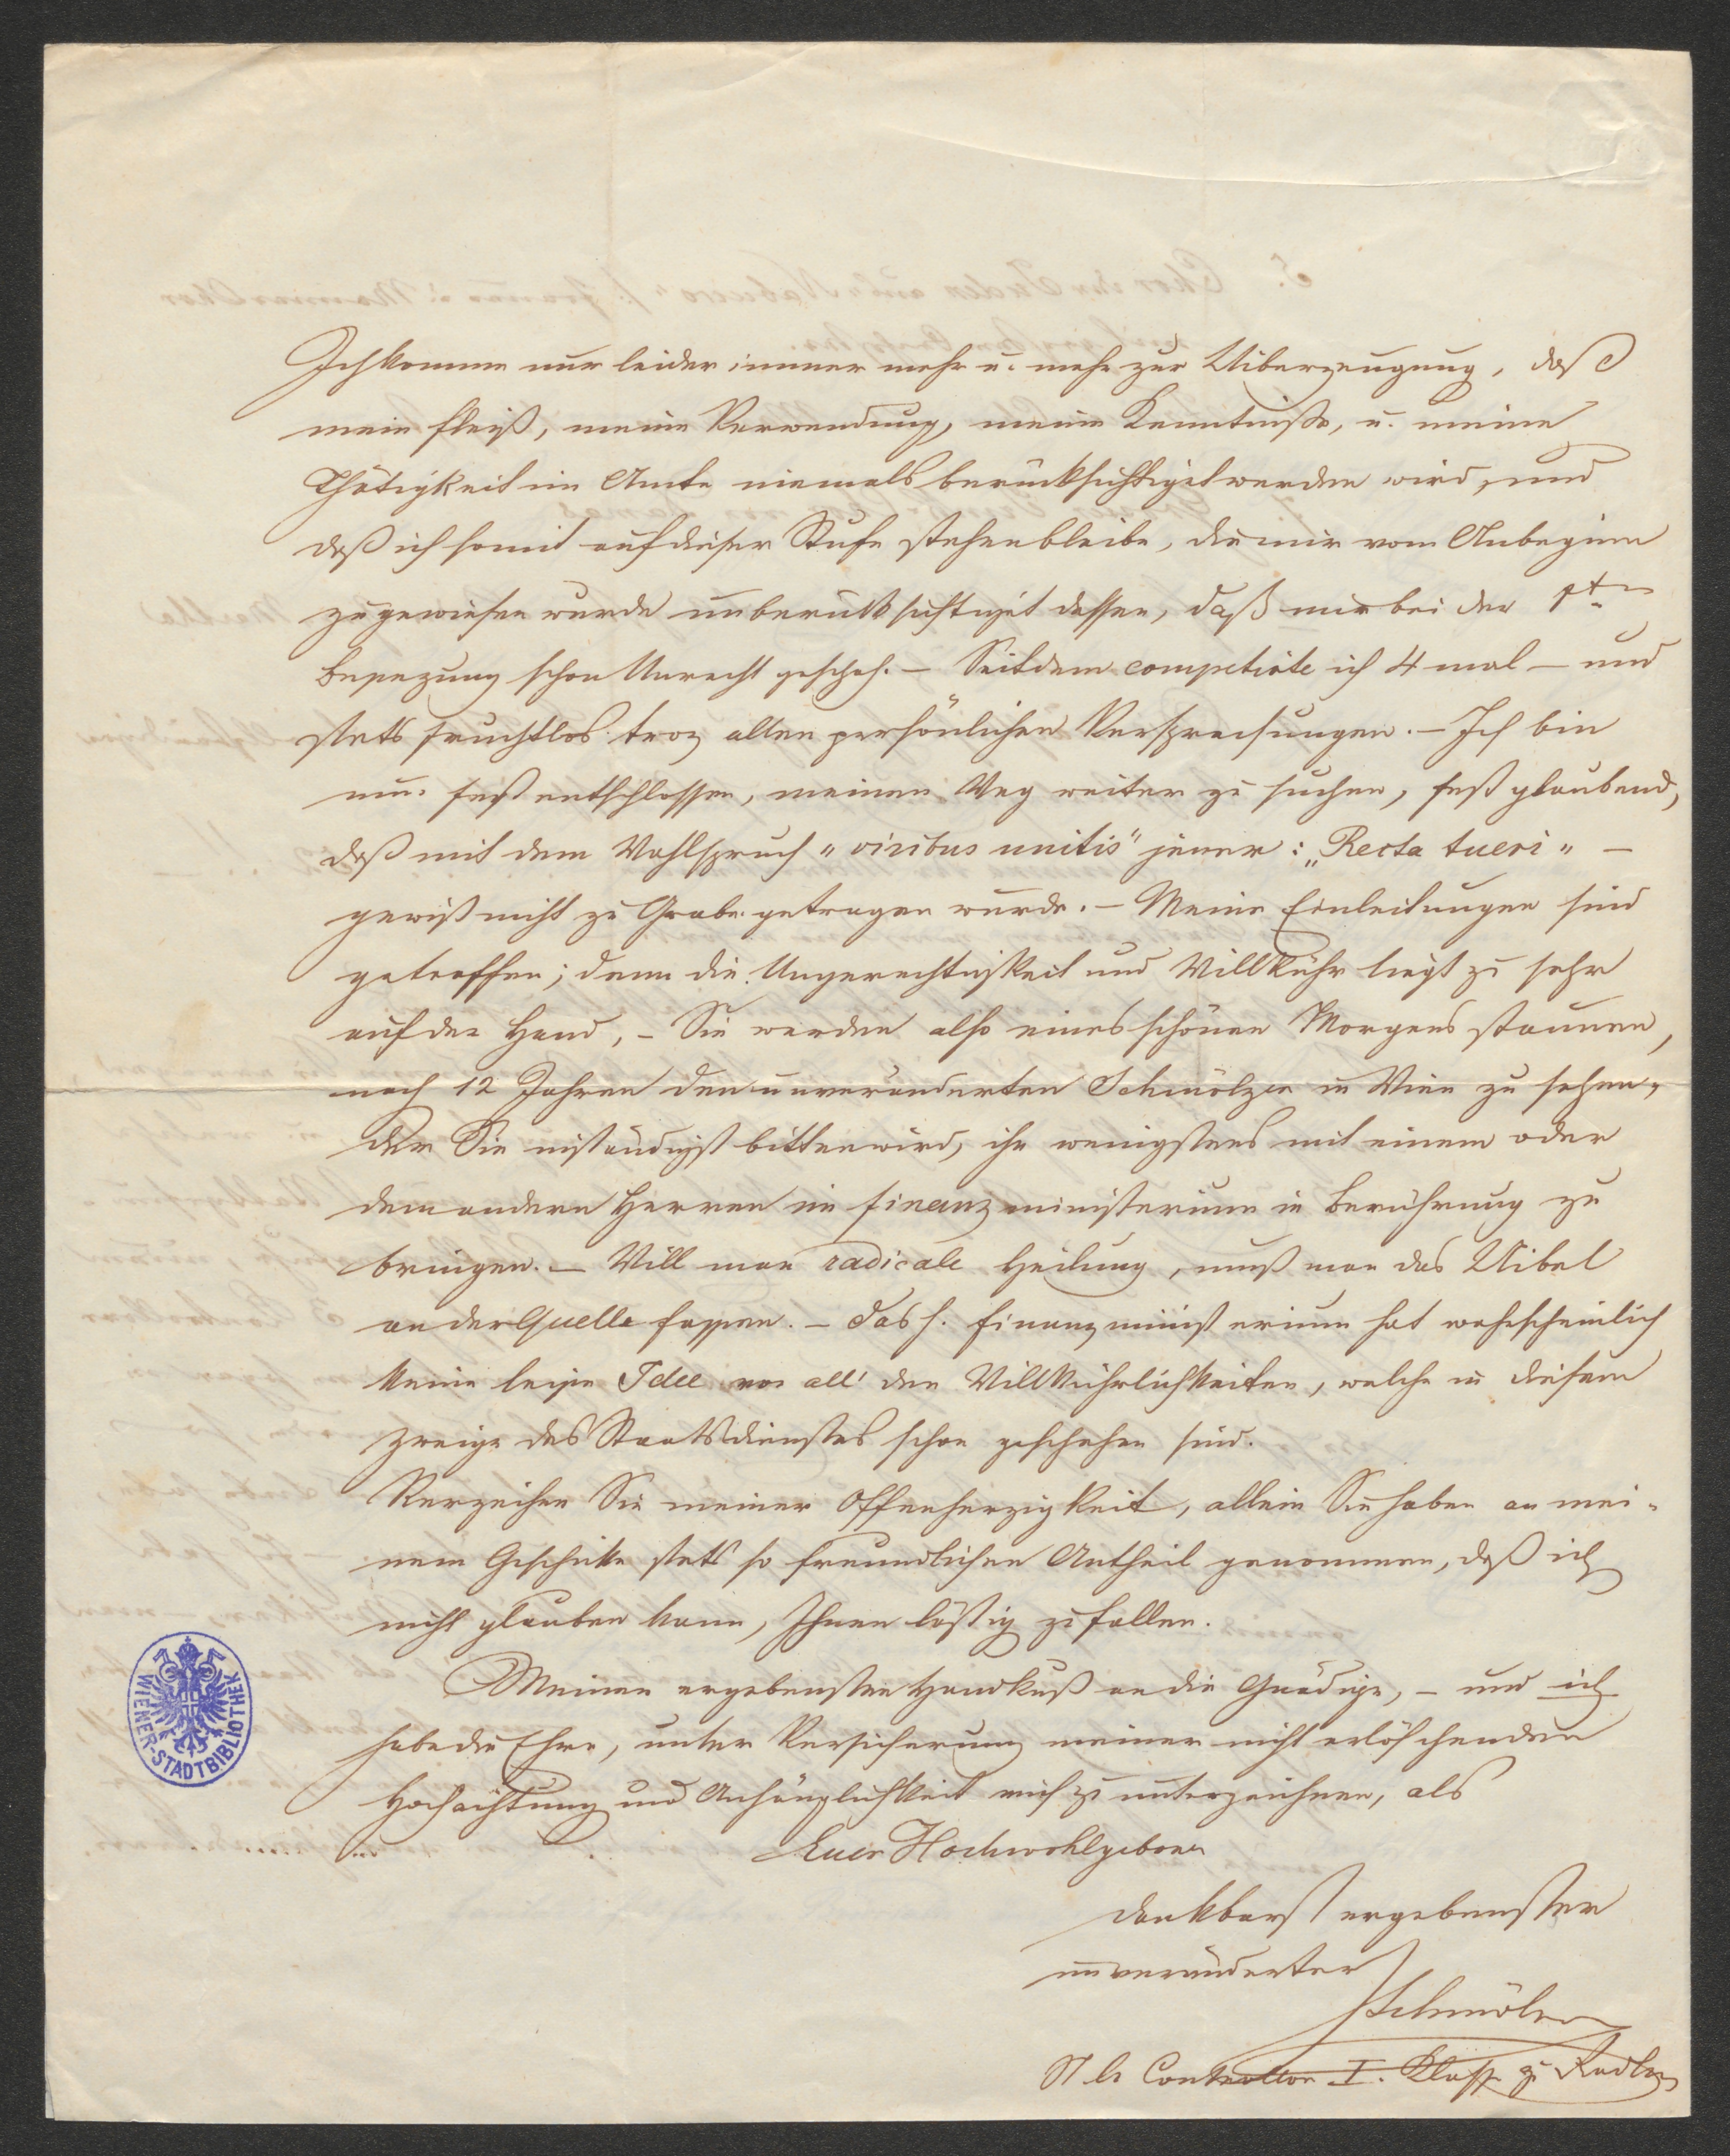 Ich komme nur leider immer mehr u. mehr zur Uiberzeugung, daß
mein Fleiß, meine Verwendung, meine Kenntniße, u. meine
Thätigkeit im Amte niemals berücksichtiget werden wird, und
daß ich somit auf dieser Stufe stehen bleibe, die mir vom Anbeginn
zugewiesen wurde unberücksichtiget dessen, daß mir bei der 1ten
Besezung schon Unrecht geschah. – Seitdem competirte ich 4 mal – und
stets fruchtlos troz allen persönlichen Versprechungen. – Ich bin
nun fest entschlossen, meinen Weg weiter zu suchen, fest glaubend,
daß mit dem Wahlspruch „viribus unitis" jener: „Recta tueri" –
gewiß nicht zu Grabe getragen wurde. – Meine Einleitungen sind
getroffen; denn die Ungerechtigkeit und Willkühr liegt zu sehr
auf der Hand, – Sie werden also eines schönen Morgens staunen,
nach 12 Jahren den unveränderten Schmölzer in Wien zu sehen,
der Sie inständigst bitten wird, ihn wenigstens mit einem oder
dem andern Herren im Finanzministerium in Berührung zu
bringen. – Will man radicale Heilung, muß man das Uibel
an der Quelle fassen. – Das h. Finanzministerium hat wahrscheinlich
keine leise Idee von all' den Willkührlichkeiten, welche in diesem
Zweige des Staatsdienstes schon geschehen sind.
Verzeihen Sie meiner Offenherzigkeit, allein Sie haben an mei-
nem Geschicke stets so freundlichen Antheil genommen, daß ich
nicht glauben kann, Ihnen lästig zu fallen.
Meinen ergebensten Handkuß an die Gnädige, – und ich
habe die Ehre, unter Versicherung meiner nicht erlöschenden
Hochachtung und Anhänglichkeit mich zu unterzeichnen, als
Euer Hochwohlgeboren
dankbarst ergebenster
unveränderter
Schmölzer
Controllor I. Klasse zu
WIENER-STADTBIBLIOTHEK